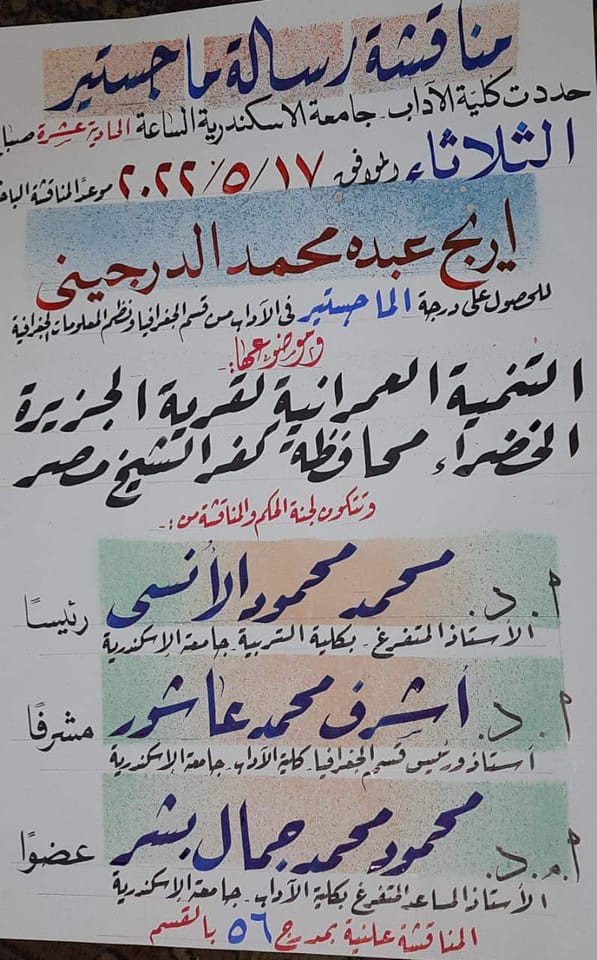 مناقشة رسالة ماجستير
حددت كلية الآداب - جامعة الاسكندرية الساعة الحادية عشرة صبا
الثلاثاء الموافق ٢٠٢٢/٥/١٧ موعدًا لمناقشة الباح
اريج عبده محمد الدرجيني
للحصول على درجة الماجستير فى الآداب من قسم الجغرافيا ونظم المعلومات الجغرافية
وموضوعها:
التنمية العمرانية لقرية الجزيرة
الخضراء محافظة كفر الشيخ مصر
وتتكون لجنة الحكم والمناقشة من:-
ا.د. محمد محمود الأنسى رئيسًا
الأستاذ المتفرغ - بكلية التربية - جامعة الإسكندرية
ا.د. أشرف محمد عاشور مشرفًا
أستاذ ورئيس قسم الجغرافيا - كلية الآداب - جامعة الإسكندرية
ا.م.د. محمود محمد جمال بشر عضوًا
الأستاذ المساعد المتفرغ بكلية الآداب - جامعة الإسكندرية
المناقشة علنية بمدرج ٥٦ بالقسم